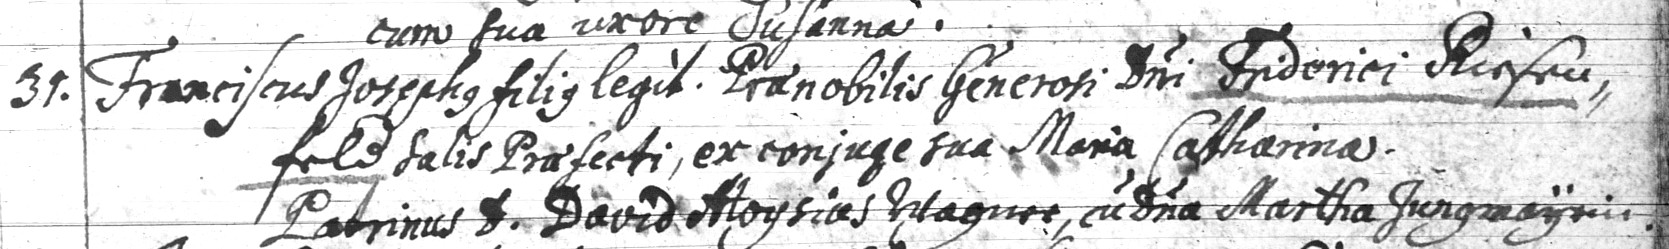 cum sua uxore Susanna.
31. Franciscus Josephus filius legit. Praenobilis Generosi Dni Friderici Riesen,,
feld Salis Praefecti, ex conjuge sua Maria Catharina.
Patrinus D. David Aloysius Wagner, cu Dna Martha Jungmaÿrin.